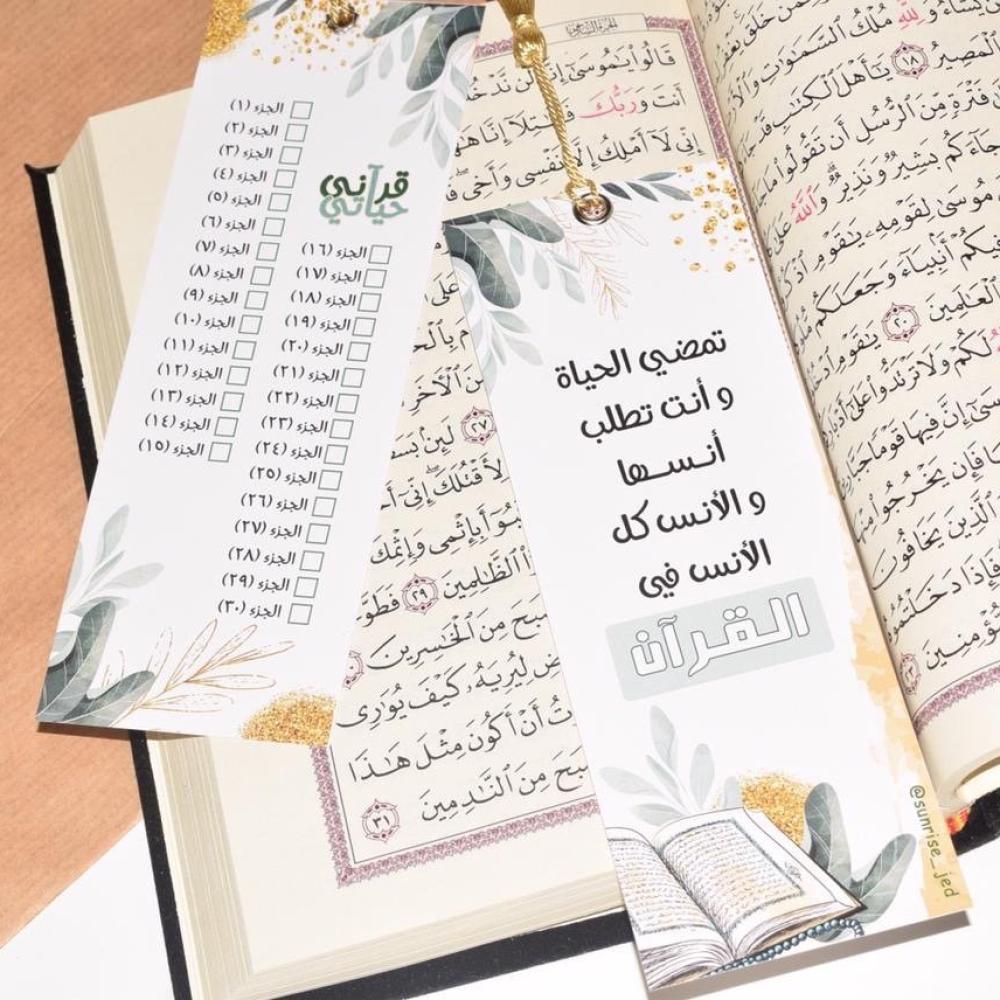 قرآني
حياتي
الجزء (١)
الجزء (٢)
الجزء (٣)
الجزء (٤)
الجزء (٥)
الجزء (٦)
الجزء (٧)
الجزء (٨)
الجزء (٩)
الجزء (١٠)
الجزء (١١)
الجزء (١٢)
الجزء (١٣)
الجزء (١٤)
الجزء (١٥)
الجزء (١٦)
الجزء (١٧)
الجزء (١٨)
الجزء (١٩)
الجزء (٢٠)
الجزء (٢١)
الجزء (٢٢)
الجزء (٢٣)
الجزء (٢٤)
الجزء (٢٥)
الجزء (٢٦)
الجزء (٢٧)
الجزء (٢٨)
الجزء (٢٩)
الجزء (٣٠)
تمضي الحياة
و أنت تطلب
أنسها
و الأنس كل
الأنس في
القرآن
@sunrise_jed
قَالُوا۟ يَـٰمُوسَىٰٓ إِنَّا لَن نَّدْخُ
أَنتَ وَرَبُّكَ فَقَـٰتِلَآ إِنَّا هَـٰ
إِنِّى لَآ أَمْلِكُ إِلَّا نَفْسِى وَأَخِى
٢٧ لَئِنۢ بَسَط
ٱلظَّـٰلِمِينَ ٢٩ فَطَوَّ
مِنَ ٱلْخَـٰسِرِينَ
لِيُرِيَهُۥ كَيْفَ يُوَٰرِى
أَنْ أَكُونَ مِثْلَ هَـٰذَا
مِنَ ٱلنَّـٰدِمِينَ ٣١
وَلِلَّهِ مُلْكُ ٱلسَّمَـٰوَٰتِ وَٱلْأَ
ٱلْمَصِيرُ ١٨ يَـٰٓأَهْلَ ٱلْكِتَـٰبِ قَدْ جَا
فَتْرَةٍ مِّنَ ٱلرُّسُلِ أَن تَقُولُوا۟ مَا جَا
جَآءَكُم بَشِيرٌ وَنَذِيرٌ وَٱللَّهُ عَلَىٰ
مُوسَىٰ لِقَوْمِهِۦ يَـٰقَوْمِ ٱذْكُ
فِيكُمْ أَنۢبِيَآءَ وَجَعَلَكُم
ٱلْعَـٰلَمِينَ ٢٠ يَـٰقَوْمِ
لَكُمْ وَلَا تَرْتَدُّوا۟ عَلَىٰٓ أَدْبَار
إِنَّ فِيهَا قَوْمًا جَبَّارِ
فَإِن يَخْرُجُوا۟ مِنْهَا
ٱلَّذِينَ يَخَافُونَ
فَإِذَا دَخَلْتُمُوهُ